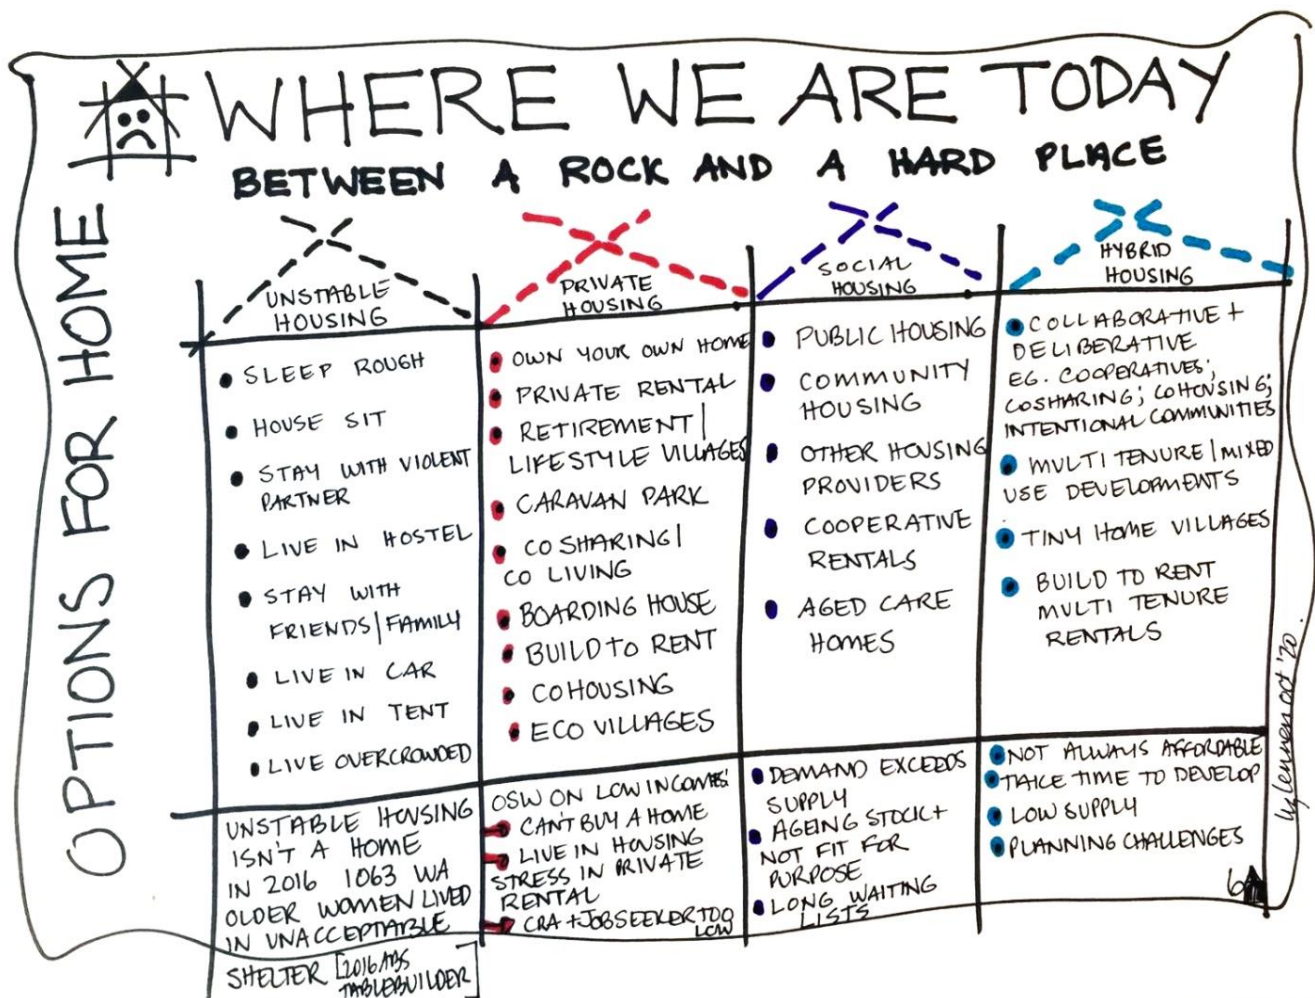 WHERE WE ARE TODAY
BETWEEN A ROCK AND A HARD PLACE
OPTIONS FOR HOME
UNSTABLE
HOUSING
SLEEP ROUGH
HOUSE SIT
STAY WITH VIOLENT
PARTNER
LIVE IN HOSTEL
STAY WITH
FRIENDS/FAMILY
LIVE IN CAR
LIVE IN TENT
LIVE OVERCROWDED
UNSTABLE HOUSING
ISN'T A HOME
IN 2016 1063 WA
OLDER WOMEN LIVED
IN UNACCEPTABLE
SHELTER [2016 ABS
TABLEBUILDER]
PRIVATE
HOUSING
OWN YOUR OWN HOME
PRIVATE RENTAL
RETIREMENT/
LIFESTYLE VILLAGES
CARAVAN PARK
CO SHARING/
CO LIVING
BOARDING HOUSE
BUILD TO RENT
COHOUSING
ECO VILLAGES
OSW ON LOW INCOMES:
CAN'T BUY A HOME
LIVE IN HOUSING
STRESS IN PRIVATE
RENTAL
CRA + JOBSEEKER TOO
LOW
SOCIAL
HOUSING
PUBLIC HOUSING
COMMUNITY
HOUSING
OTHER HOUSING
PROVIDERS
COOPERATIVE
RENTALS
AGED CARE
HOMES
DEMAND EXCEEDS
SUPPLY
AGEING STOCK +
NOT FIT FOR
PURPOSE
LONG WAITING
LISTS
HYBRID
HOUSING
COLLABORATIVE +
DELIBERATIVE
EG. COOPERATIVES;
COSHARING; COHOUSING;
INTENTIONAL COMMUNITIES
MULTI TENURE/MIXED
USE DEVELOPMENTS
TINY HOME VILLAGES
BUILD TO RENT
MULTI TENURE
RENTALS
NOT ALWAYS AFFORDABLE
TAKE TIME TO DEVELOP
LOW SUPPLY
PLANNING CHALLENGES
6
oct '20.